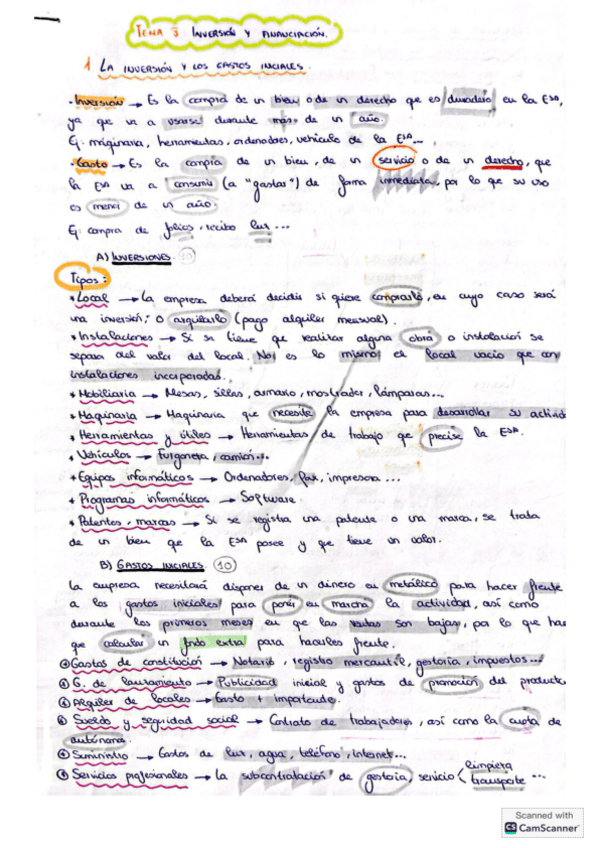 TEMA 3 INVERSIÓN Y FINANCIACIÓN.
1 LA INVERSIÓN Y LOS GASTOS INICIALES.
· Inversión → Es la compra de un bien o de un derecho que es duradero en la ESA,
ya que va a usarse durante más de un año.
Ej. maginaria, herramientas, ordenadores, vehículo de la ESA...
· Gasto → Es la compra de un bien, de un servicio o de un derecho, que
la ESA va a consumir (a "gastar") de forma inmediata, por lo que su uso
es menor de un año.
Ej: compra de folios, recibo luz...
A) INVERSIONES. 10
Tipos:
* Local → La empresa deberá decidir si quiere comprarlo, en cuyo caso será
una inversión; o arquilarlo (pago alquiler mensual).
* Instalaciones → Si se tiene que realizar alguna obra o instalación se
separa del valor del local. No es lo mismo el local vacío que con
instalaciones incorporadas.
* Mobiliaria → Mesas, sillas, armario, mostrador, lámparas...
* Maquinaria → Maquinaria que necesite la empresa para desarrollar su activid
* Herramientas y útiles → Herramientas de trabajo que precise la ESA.
* Vehículos → Furgoneta, camión...
* Equipos informáticos → Ordenadores, fax, impresora...
* Programas informáticos → Software.
* Patentes, marcas → Si se registra una patente o una marca, se trata
de un bien que la ESA posee y que tiene un valor.
B) GASTOS INICIALES. 10
La empresa necesitará disponer de un dinero en metálico para hacer frente
a los gastos iniciales para poner en marcha la actividad, así como
durante los primeros meses en que las ventas son bajas, por lo que hay
que calcular un fondo extra para hacerles frente.
Gastos de constitución → Notario, registro mercantil, gestoría, impuestos...
G. de lanzamiento → Publicidad inicial y gastos de promoción del producto
Alquiler de locales → Gasto + importante.
Sueldo y seguridad social → Contrato de trabajadores, así como la cuota de
autónomo.
Suministro → Gastos de luz, agua, teléfono, internet...
Servicios profesionales → La subcontratación de gestoría, servicio < limpieza
transporte ...
Scanned with
CS CamScanner